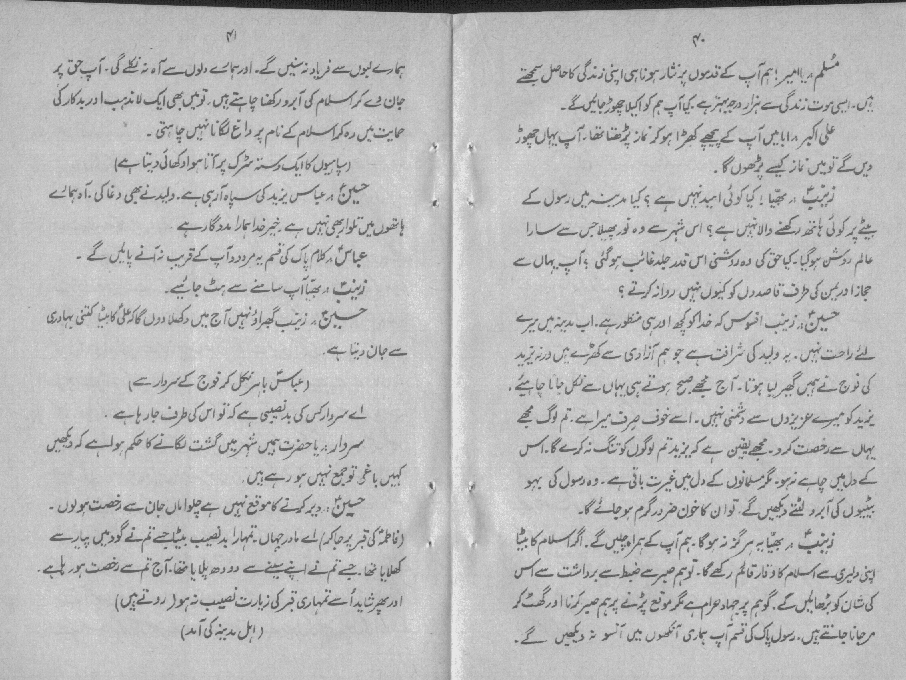 ۴۰
مسلم :۔ یا امیر! ہم آپ کے قدموں پر نثار ہونا ہی اپنی زندگی کا حاصل سمجھتے
ہیں۔ ایسی موت زندگی سے ہزار درجہ بہتر ہے۔ کیا آپ ہم کو اکیلا چھوڑ جائیں گے۔
علی اکبر :۔ ابا میں آپ کے پیچھے کھڑا ہو کر نماز پڑھتا تھا۔ آپ یہاں چھوڑ
دیں گے تو میں نماز کیسے پڑھوں گا۔
زینبؑ :۔ بھیّا! کیا کوئی امید نہیں ہے؟ کیا مدینہ میں رسول کے
بیٹے پر کوئی ہاتھ رکھنے والا نہیں ہے؟ اس شہر سے وہ نور پھیلا جس سے سارا
عالم روشن ہو گیا۔ کیا حق کی وہ روشنی اس قدر جلد غائب ہو گئی؟ آپ یہاں سے
حجاز اور یمن کی طرف قاصدوں کو کیوں نہیں روانہ کرتے؟
حسینؑ :۔ زینب افسوس کہ خدا کو کچھ اور ہی منظور ہے۔ اب مدینہ میں میرے
لئے راحت نہیں۔ یہ ولید کی شرافت ہے جو ہم آزادی سے کھڑے ہیں ورنہ یزید
کی فوج نے ہمیں گھیر لیا ہوتا۔ آج مجھے صبح ہوتے ہی یہاں سے نکل جانا چاہیئے۔
یزید کو میرے عزیزوں سے دشمنی نہیں۔ اسے خوف صرف میرا ہے۔ تم لوگ مجھے
یہاں سے رخصت کر دو۔ مجھے یقین ہے کہ یزید تم لوگوں کو تنگ نہ کرے گا۔ اس
کے دل میں چاہے نہ ہو۔ مگر مسلمانوں کے دل میں غیرت باقی ہے۔ وہ رسول کی بہو
بیٹیوں کی آبرو لٹتے دیکھیں گے، تو ان کا خون ضرور گرم ہو جائے گا۔
زینبؑ :۔ بھیّا یہ ہرگز نہ ہوگا۔ ہم آپ کے ہمراہ چلیں گے۔ اگر اسلام کا بیٹا
اپنی دلیری سے اسلام کا وقار قائم رکھے گا۔ تو ہم صبر سے ضبط سے برداشت سے اس
کی شان کو بڑھائیں گے۔ گو ہم پر جہاد حرام ہے مگر موقع پڑنے پر ہم صبر کرنا اور گھٹ کر
مر جانا جانتے ہیں۔ رسول پاک کی قسم آپ ہماری آنکھوں میں آنسو نہ دیکھیں گے۔
۴۱
ہمارے لبوں سے فریاد نہ سنیں گے۔ اور ہمارے دلوں سے آہ نہ نکلے گی۔ آپ حق پر
جان دے کر اسلام کی آبرو رکھنا چاہتے ہیں، تو میں بھی ایک لا مذہب اور بدکار کی
حمایت میں رہ کر اسلام کے نام پر داغ لگانا نہیں چاہتی۔
(سپاہیوں کا ایک دستہ سڑک پر آتا ہوا دکھائی دیتا ہے)
حسینؑ :۔ عباس یزید کی سپاہ آ رہی ہے۔ ولید نے بھی دغا کی۔ آہ ہمارے
ہاتھوں میں تلوار بھی نہیں ہے۔ خیر خدا ہمارا مددگار ہے
عباسؑ :۔ کلام پاک کی قسم یہ مردود آپ کے قریب نہ آنے پائیں گے۔
زینبؑ :۔ بھیّا آپ سامنے سے ہٹ جائیے۔
حسینؑ :۔ زینب گھبراؤ نہیں آج میں دکھلا دوں گا کہ علیؑ کا بیٹا کتنی بہادری
سے جان دیتا ہے۔
(عباسؑ باہر نکل کر فوج کے سردار سے)
اے سردار کس کی بد نصیبی ہے کہ تو اس کی طرف جا رہا ہے۔
سردار :۔ یا حضرت ہمیں شہر میں گشت لگانے کا حکم ہوا ہے کہ دیکھیں
کہیں باغی تو جمع نہیں ہو رہے ہیں۔
حسینؑ :۔ دیر کرنے کا موقع نہیں ہے چلو اماں جان سے رخصت ہو لوں۔
(فاطمہؑ کی قبر پر جا کر) اے مادر جہاں۔ تمہارا بد نصیب بیٹا جسے تم نے گود میں پیار سے
کھلایا تھا۔ جسے تم نے اپنے سینے سے دودھ پلایا تھا۔ آج تم سے رخصت ہو رہا ہے۔
اور پھر شاید اُسے تمہاری قبر کی زیارت نصیب نہ ہو (روتے ہیں)
(اہل مدینہ کی آمد)